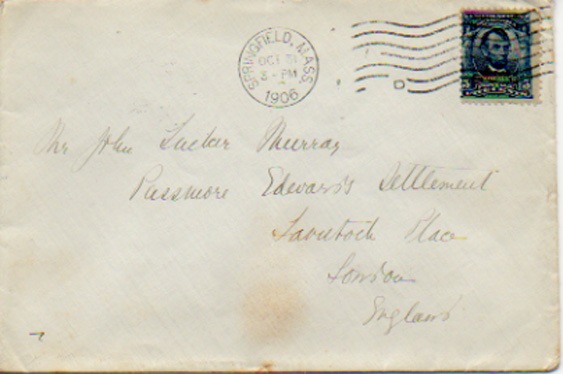 SPRINGFIELD, MASS.
OCT
3-PM
1906
D
Mr John Tucker Murray
Passmore Edwards Settlement
Tavistock Place
London
England